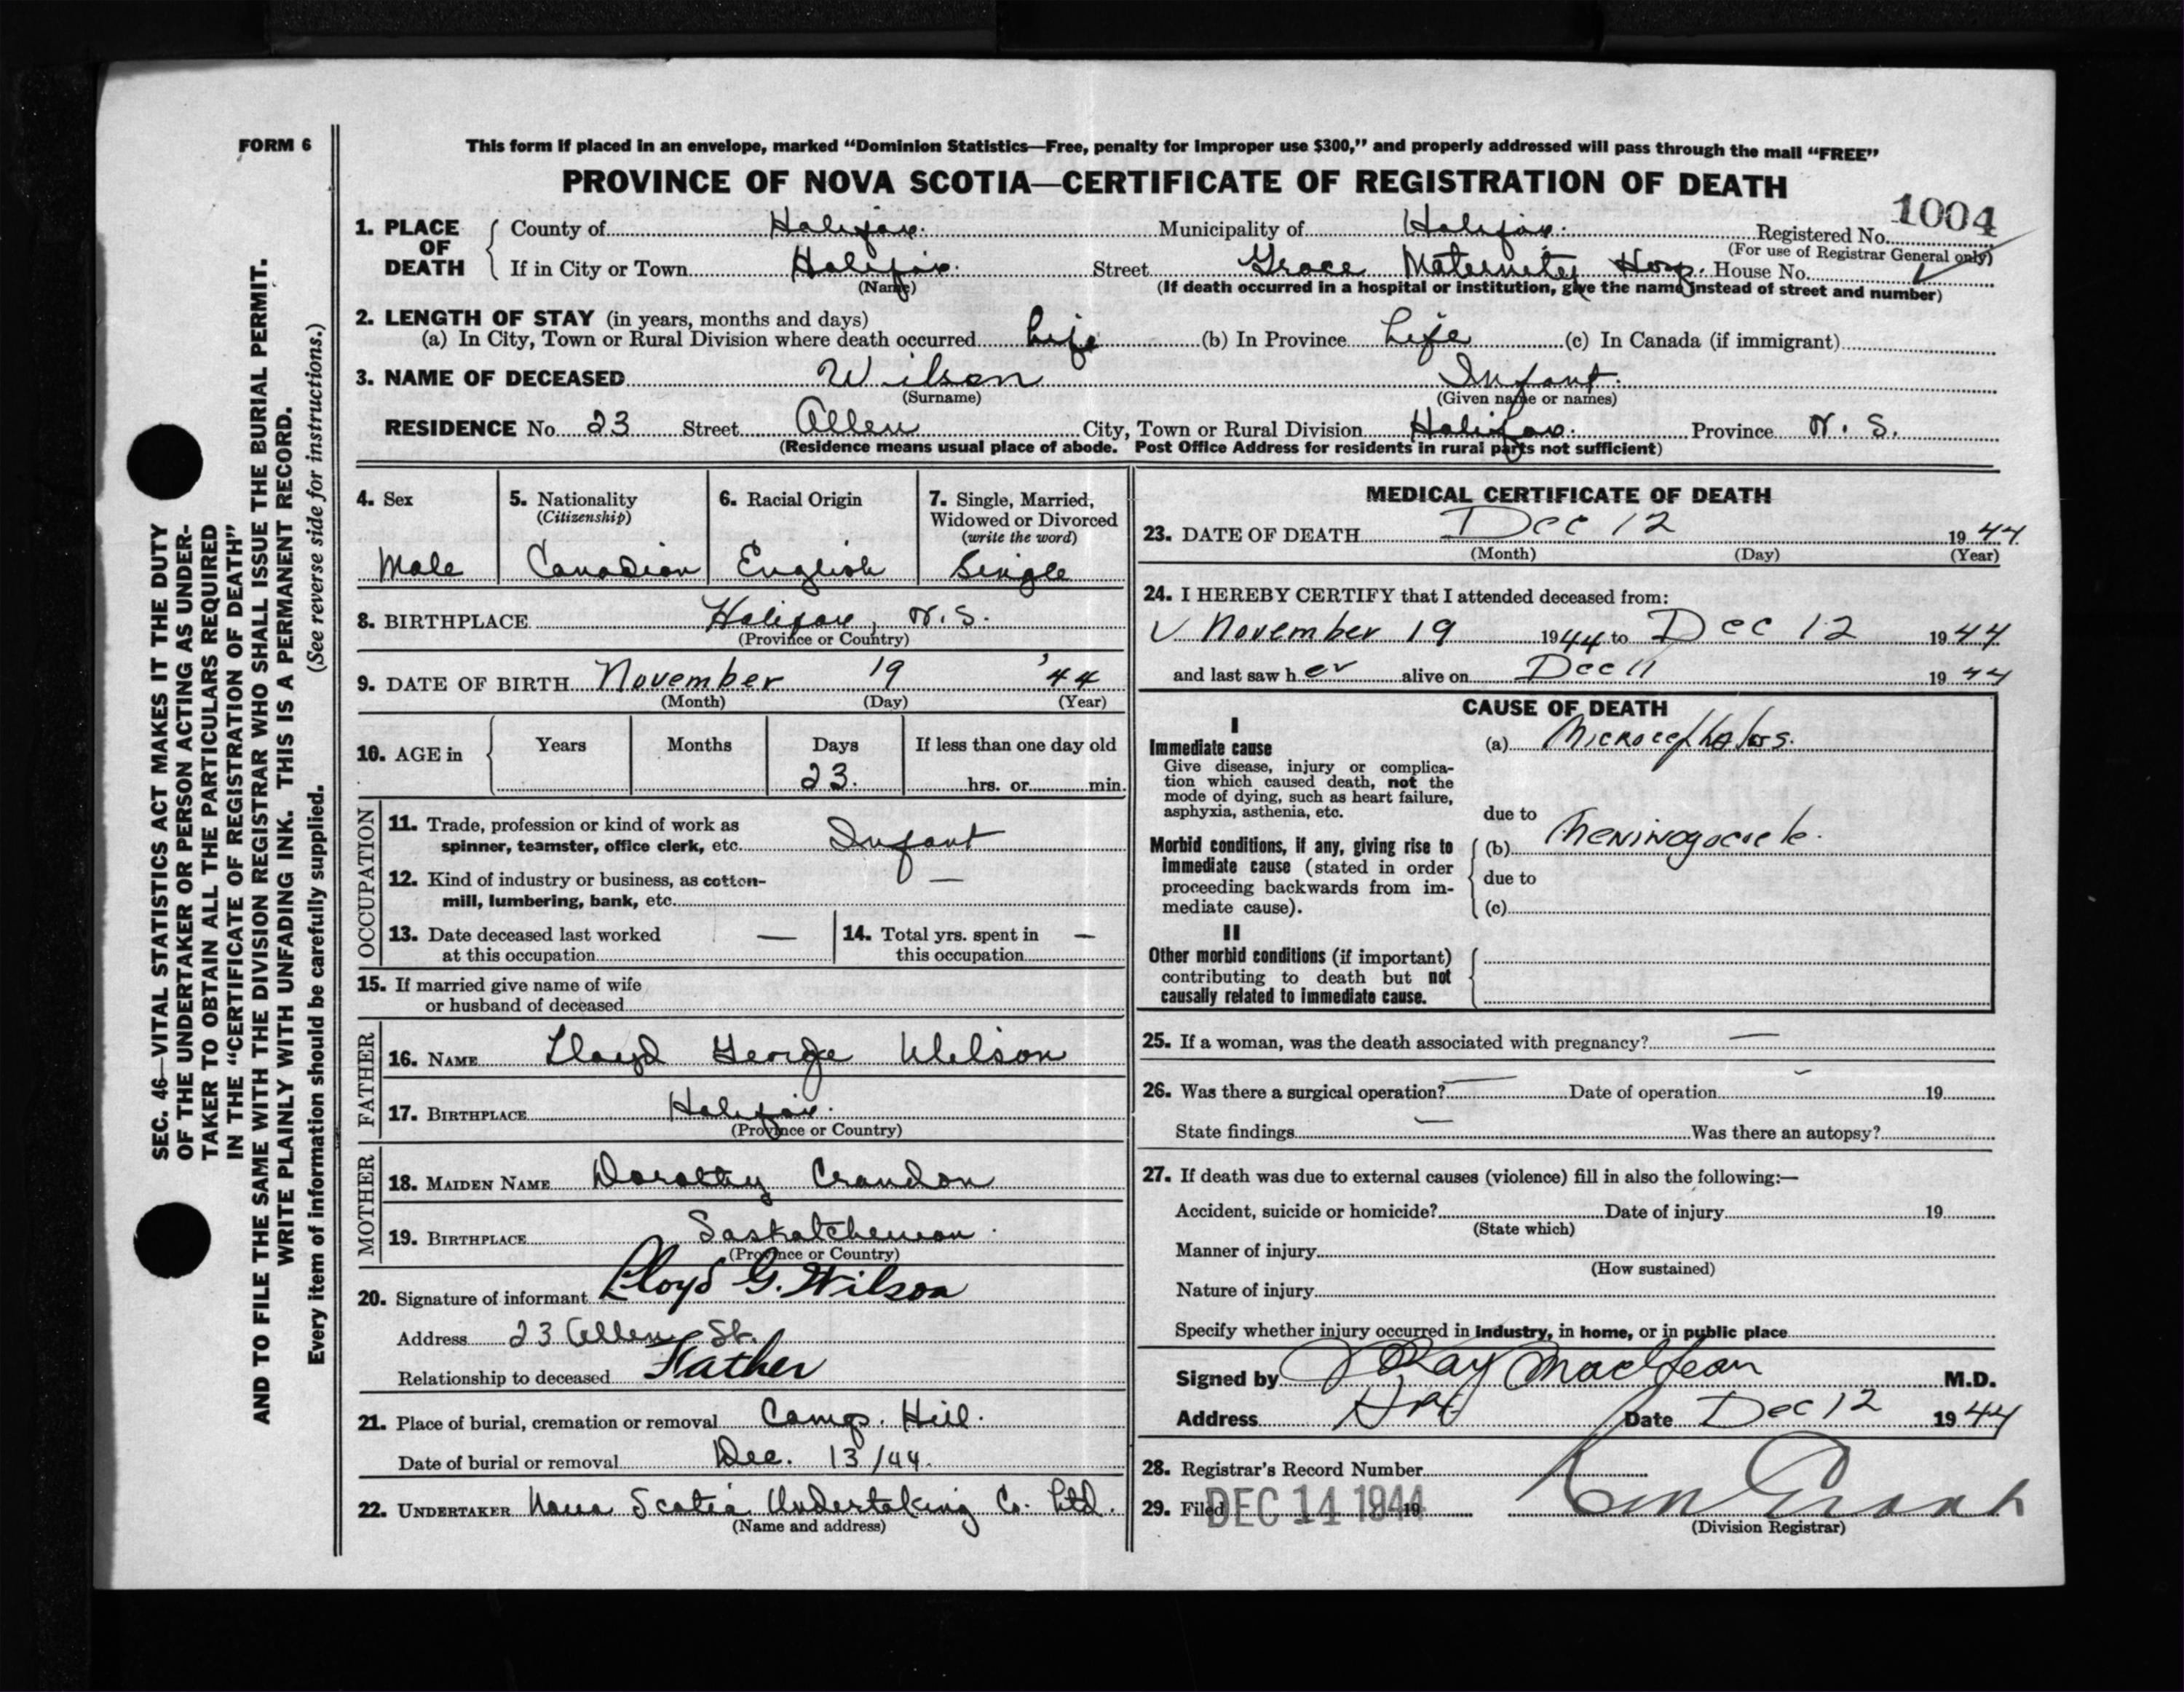 FORM 6
This form if placed in an envelope, marked “Dominion Statistics—Free, penalty for improper use $300,” and properly addressed will pass through the mail “FREE”
PROVINCE OF NOVA SCOTIA—CERTIFICATE OF REGISTRATION OF DEATH
1004
1. PLACE OF DEATH
County of Halifax. Municipality of Halifax. Registered No.
(For use of Registrar General only)
If in City or Town Halifax. Street Grace Maternity Hosp. House No.
(Name) (If death occurred in a hospital or institution, give the name instead of street and number)
2. LENGTH OF STAY (in years, months and days)
(a) In City, Town or Rural Division where death occurred Life (b) In Province Life (c) In Canada (if immigrant)
3. NAME OF DECEASED Wilson Infant.
(Surname) (Given name or names)
RESIDENCE No. 23 Street Allen City, Town or Rural Division Halifax. Province N. S.
(Residence means usual place of abode. Post Office Address for residents in rural parts not sufficient)
4. Sex
Male
5. Nationality
(Citizenship)
Canadian
6. Racial Origin
English
7. Single, Married,
Widowed or Divorced
(write the word)
Single
8. BIRTHPLACE Halifax, N. S.
(Province or Country)
9. DATE OF BIRTH November 19 '44
(Month) (Day) (Year)
10. AGE in
Years Months Days If less than one day old
23. hrs. or min.
OCCUPATION
11. Trade, profession or kind of work as
spinner, teamster, office clerk, etc. Infant
12. Kind of industry or business, as cotton- —
mill, lumbering, bank, etc.
13. Date deceased last worked —
at this occupation
14. Total yrs. spent in —
this occupation
15. If married give name of wife
or husband of deceased
FATHER
16. NAME Lloyd George Wilson
17. BIRTHPLACE Halifax.
(Province or Country)
MOTHER
18. MAIDEN NAME Dorothy Crandon
19. BIRTHPLACE Saskatchewan.
(Province or Country)
20. Signature of informant Lloyd G. Wilson
Address 23 Allen St.
Relationship to deceased Father
21. Place of burial, cremation or removal Camp. Hill.
Date of burial or removal Dec. 13/44.
22. UNDERTAKER Nova Scotia Undertaking Co. Ltd.
(Name and address)
MEDICAL CERTIFICATE OF DEATH
23. DATE OF DEATH Dec 12 1944
(Month) (Day) (Year)
24. I HEREBY CERTIFY that I attended deceased from:
November 19 1944 to Dec 12 1944
and last saw her alive on Dec 11 1944
CAUSE OF DEATH
I
Immediate cause
Give disease, injury or complica-
tion which caused death, not the
mode of dying, such as heart failure,
asphyxia, asthenia, etc.
(a) Microcephalus.
due to
Morbid conditions, if any, giving rise to
immediate cause (stated in order
proceeding backwards from im-
mediate cause).
(b) Meningocoele.
due to
(c)
II
Other morbid conditions (if important)
contributing to death but not
causally related to immediate cause.
25. If a woman, was the death associated with pregnancy? —
26. Was there a surgical operation? — Date of operation - 19
State findings — Was there an autopsy?
27. If death was due to external causes (violence) fill in also the following:—
Accident, suicide or homicide? Date of injury 19
(State which)
Manner of injury
(How sustained)
Nature of injury
Specify whether injury occurred in industry, in home, or in public place
Signed by Ray MacLean M.D.
Address Hfx Date Dec 12 1944
28. Registrar's Record Number
29. Filed DEC 14 1944 19
(Division Registrar)
SEC. 46—VITAL STATISTICS ACT MAKES IT THE DUTY
OF THE UNDERTAKER OR PERSON ACTING AS UNDER-
TAKER TO OBTAIN ALL THE PARTICULARS REQUIRED
IN THE “CERTIFICATE OF REGISTRATION OF DEATH”
AND TO FILE THE SAME WITH THE DIVISION REGISTRAR WHO SHALL ISSUE THE BURIAL PERMIT.
WRITE PLAINLY WITH UNFADING INK. THIS IS A PERMANENT RECORD.
Every item of information should be carefully supplied. (See reverse side for instructions.)